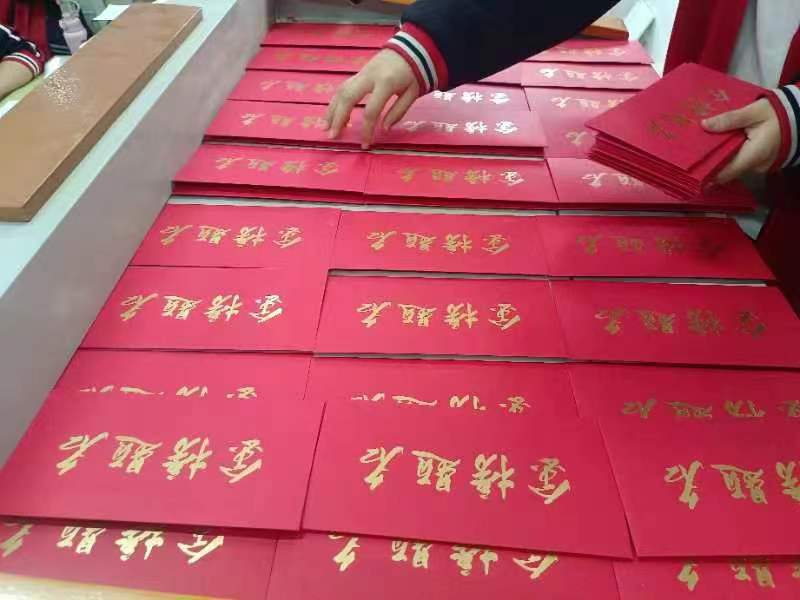 金榜题名
金榜题名
金榜题名
金榜题名
金榜题名
金榜题名
金榜题名
金榜题名
金榜题名
金榜题名
金榜题名
金榜题名